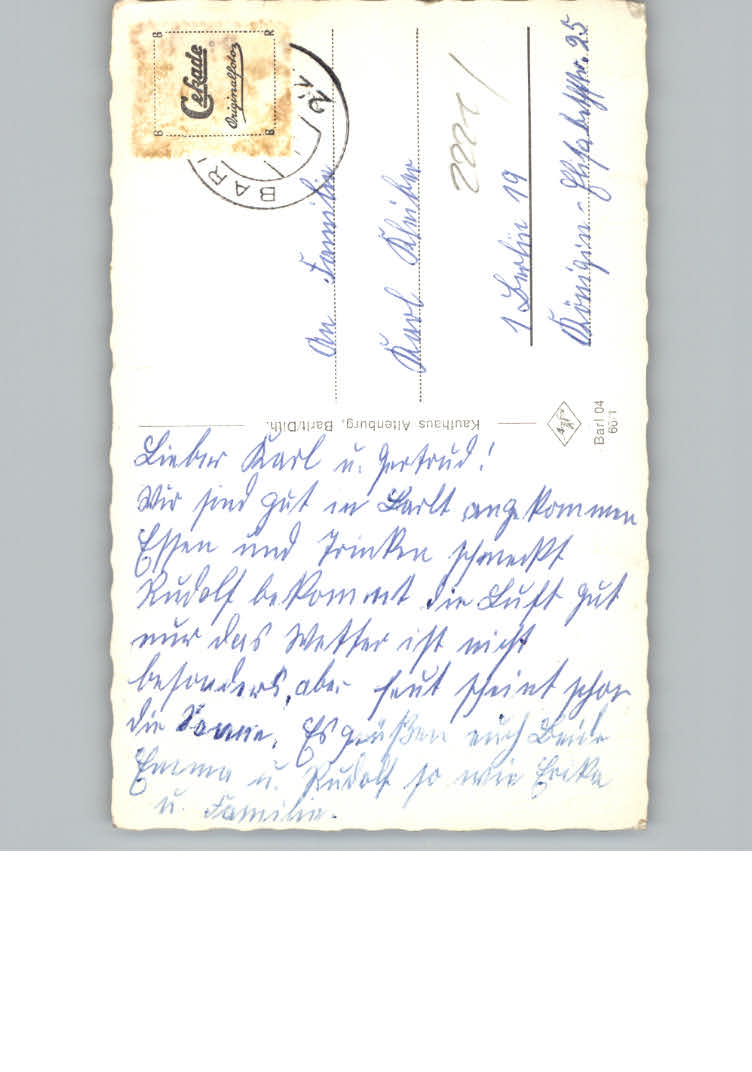 Cekade
Originalfoto
B B R B
BARL
An Familie
Karl
1 Berlin 19
Königin-Elisabethstr. 25
2221
Kaufhaus Altenburg, Barlt/Dith.
Barl 04
Lieber Karl u. Gertrud!
Wir sind gut in Barlt angekommen
Essen und Trinken schmeckt
Rudolf bekommt die Luft gut
nur das Wetter ist nicht
besonders, aber heut scheint schon
die Sonne. Es grüßen euch Beide
Emma u. Rudolf so wie Erika
u. Familie.